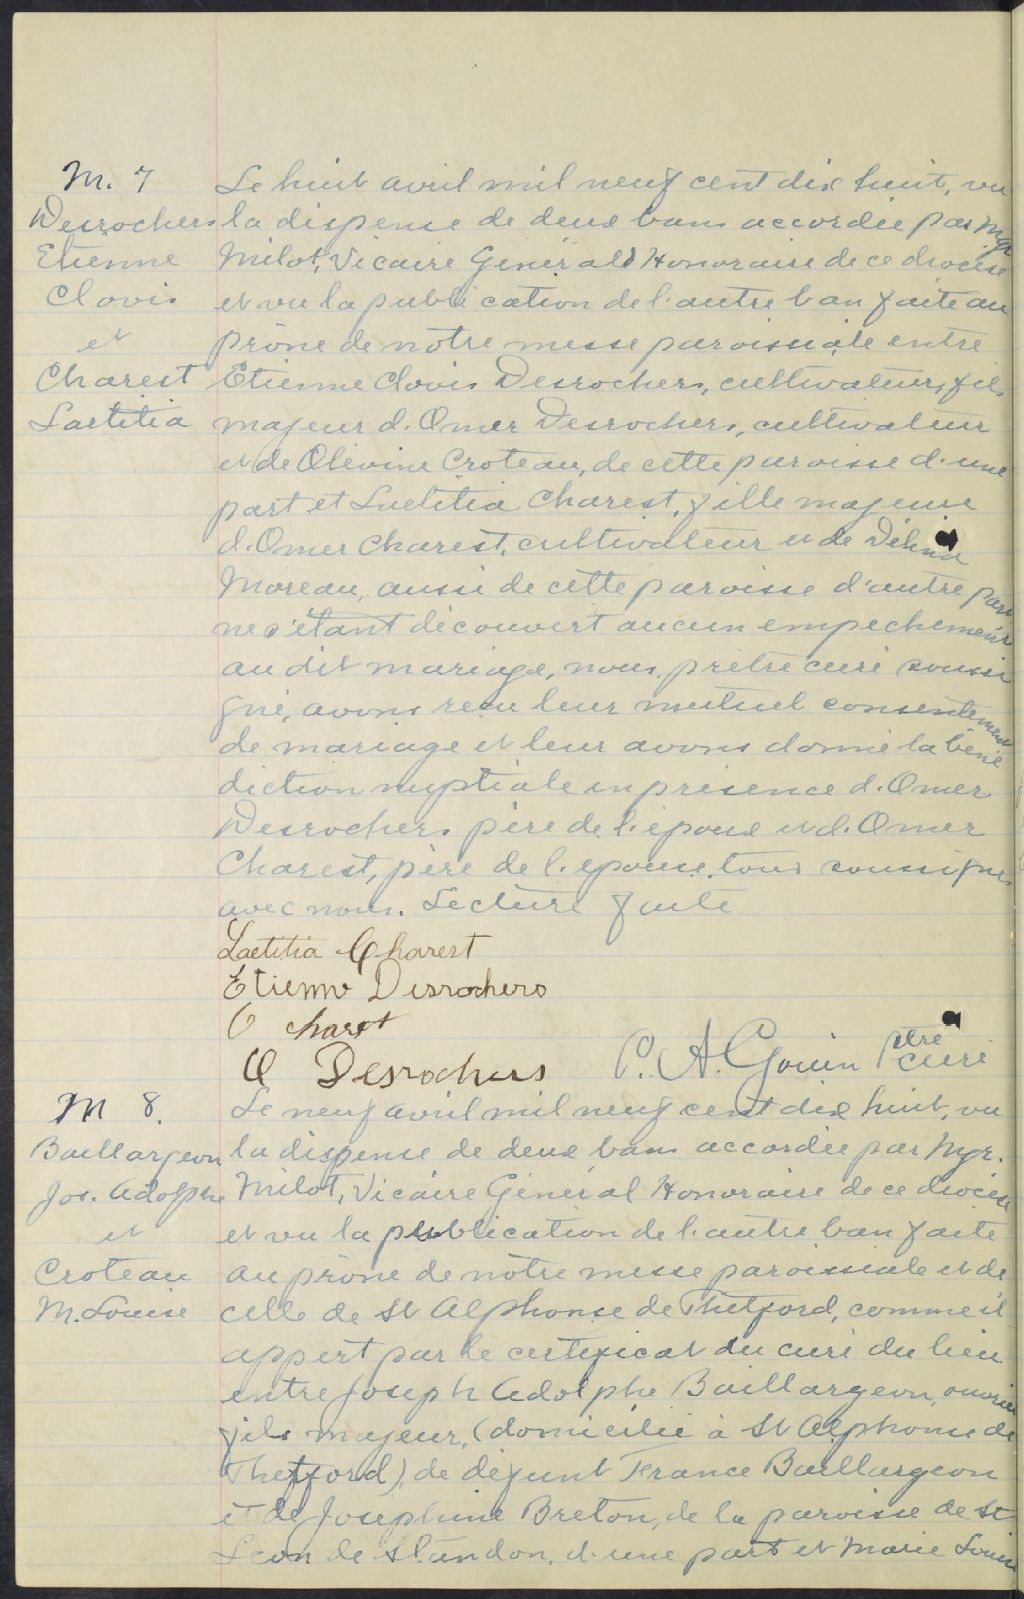 M. 7
Desrochers
Etienne
Clovis
et
Charest
Laetitia
Le huit avril mil neuf cent dix huit, vu
la dispense de deux bans accordée par Mgr
Milot, Vicaire Général Honoraire de ce diocèse
et vu la publication de l'autre ban faite au
prône de nôtre messe paroissiale entre
Etienne Clovis Desrochers, cultivateur, fils
majeur d'Omer Desrochers, cultivateur
et de Olévine Croteau, de cette paroisse d'une
part et Laetitia Charest, fille majeure
d'Omer Charest, cultivateur et de Délina
Moreau, aussi de cette paroisse d'autre part
ne s'étant découvert aucun empechement
au dit mariage, nous, prêtre curé soussi
gné, avons reçu leur mutuel consentement
de mariage et leur avons donné la béné
diction nuptiale en présence d'Omer
Desrochers père de l'époux et d'Omer
Charest, père de l'épouse, tous soussignés
avec nous. Lecture faite
Laetitia Charest
Etienne Desrochers
O Charest
O Desrochers
P. A. Gouin Ptre curé
M 8.
Baillargeon
Jos. Adolphe
et
Croteau
M. Louise
Le neuf avril mil neuf cent dix huit, vu
la dispense de deux bans accordée par Mgr.
Milot, Vicaire Général Honoraire de ce diocèse
et vu la publication de l'autre ban faite
au prône de nôtre messe paroissiale et de
celle de St Alphonse de Thetford, comme il
appert par le certificat du curé du lieu
entre Joseph Adolphe Baillargeon, ouvrier
fils majeur, (domicilié à St Alphonse de
Thetford), de défunt France Baillargeon
et de Josephine Breton, de la paroisse de St
Léon de Standon, d'une part et Marie Louise